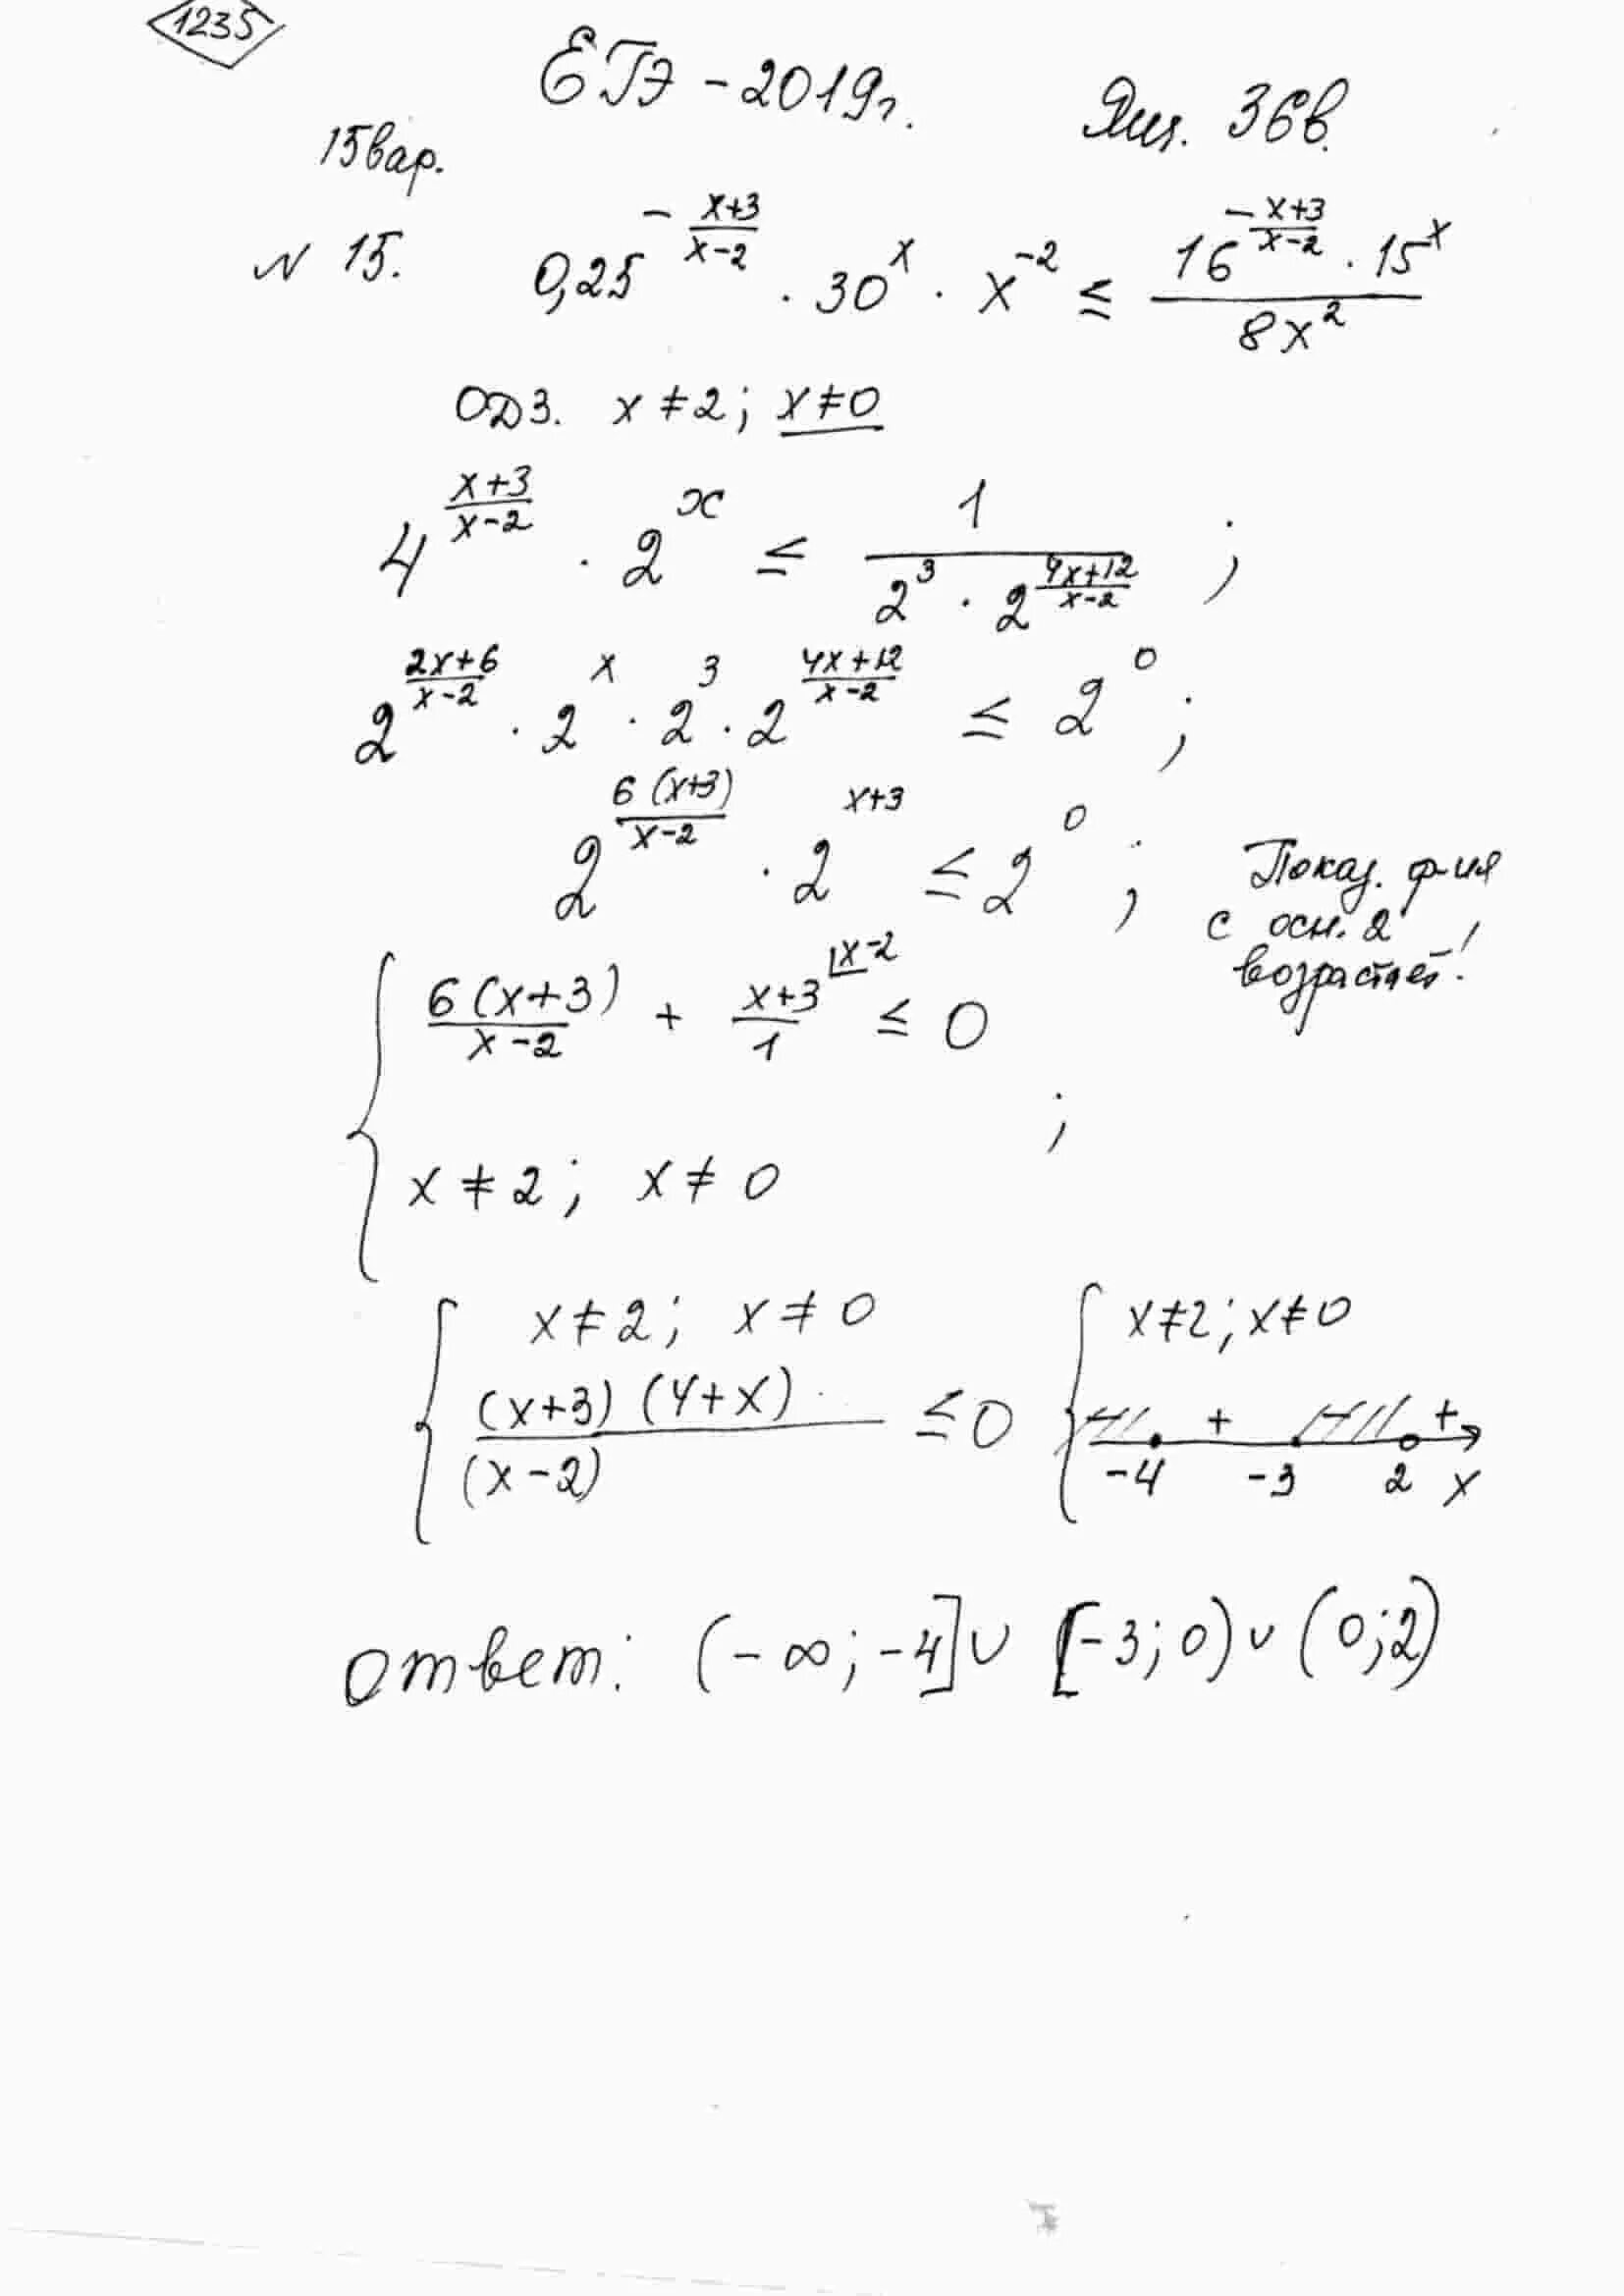 1235
ЕГЭ - 2019г. Ящ. 36в.
15вар.
N 15. 0,25^(-(x+3)/(x-2)) · 30^x · x^(-2) ≤ (16^(-(x+3)/(x-2)) · 15^x)/(8x^2)
ОДЗ. x ≠ 2; x ≠ 0
4^((x+3)/(x-2)) · 2^x ≤ 1/(2^3 · 2^((4x+12)/(x-2))) ;
2^((2x+6)/(x-2)) · 2^x · 2^3 · 2^((4x+12)/(x-2)) ≤ 2^0 ;
2^((6(x+3))/(x-2)) · 2^(x+3) ≤ 2^0 ;
Показ. ф-ия
с осн. 2
возрастает!
{ (6(x+3))/(x-2) + (x+3)/1 ⌊x-2 ≤ 0
x ≠ 2; x ≠ 0 ;
{ x ≠ 2; x ≠ 0
((x+3)(4+x))/(x-2) ≤ 0
{ x ≠ 2; x ≠ 0
+ +
-4 -3 2 x
ответ: (-∞; -4] ∪ [-3; 0) ∪ (0; 2)